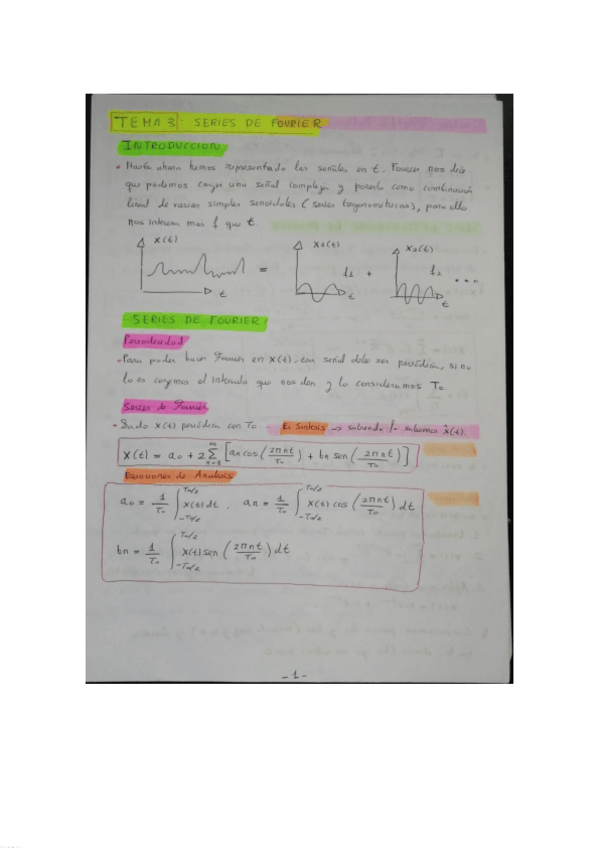 TEMA 3: SERIES DE FOURIER
INTRODUCCION
• Hasta ahora hemos representado las señales en t. Fourier nos dice
que podemos coger una señal compleja y ponerla como combinación
lineal de varias simples senoidales (series trigonometricas), para ello
nos interesa mas f que t.
x(t) x1(t) x2(t)
= f1 + f2 ...
t t t
SERIES DE FOURIER
Periodicidad
• Para poder hacer Fourier en x(t), esa señal debe ser periódica, si no
lo es cogemos el intervalo que nos den y lo consideramos T₀
Series de Fourier
• Dado x(t) periódica con T₀ Ec Sintesis → sabiendo fn sabemos x̃(t).
x(t) = a₀ + 2 ∑_{n=1}^{∞} [an cos(2πnt/T₀) + bn sen(2πnt/T₀)]
Ecuaciones de Analisis
a₀ = 1/T₀ ∫_{-T₀/2}^{T₀/2} x(t) dt, an = 1/T₀ ∫_{-T₀/2}^{T₀/2} x(t) cos(2πnt/T₀) dt
bn = 1/T₀ ∫_{-T₀/2}^{T₀/2} x(t) sen(2πnt/T₀) dt
-1-